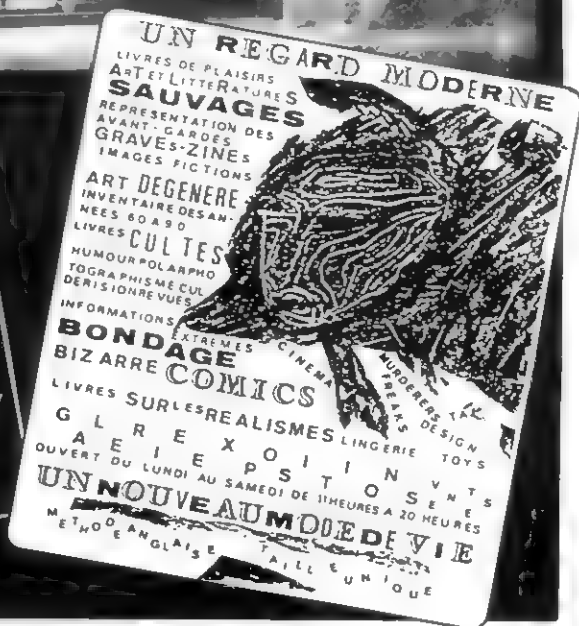 UN REGARD MODERNE
LIVRES DE PLAISIRS
ART ET LITTERATURES
SAUVAGES
REPRESENTATION DES
AVANT-GARDES
GRAVES-ZINES
IMAGES FICTIONS
ART DEGENERE
INVENTAIRE DES AN-
NEES 60 A 90
LIVRES CULTES
HUMOUR POLAR PHO
TOGRAPHISME CUL
DERISION REVUES
INFORMATIONS EXTREMES
BONDAGE
BIZARRE COMICS
CINEMA
FREAKS
MURDERERS
DESIGN
LIVRES SUR LES REALISMES LINGERIE TOYS
GALERIE EXPOSITIONS VENTES
OUVERT DU LUNDI AU SAMEDI DE 11HEURES A 20 HEURES
UN NOUVEAU MODE DE VIE
METHODE ANGLAISE TAILLE UNIQUE